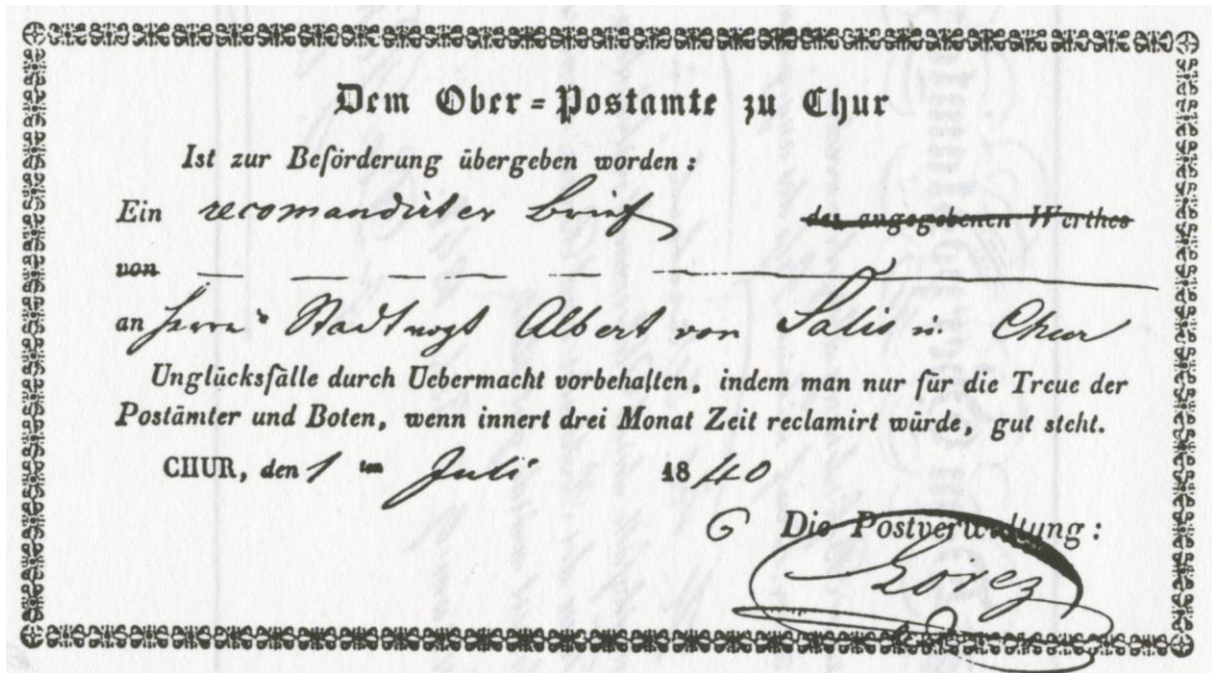 Dem Ober=Postamte zu Chur
Ist zur Beförderung übergeben worden:
Ein recomandirter Brief des angegebenen Werthes
von
an Herrn Stadtvogt Albert von Salis in Chur
Unglücksfälle durch Uebermacht vorbehalten, indem man nur für die Treue der
Postämter und Boten, wenn innert drei Monat Zeit reclamirt würde, gut steht.
CHUR, den 1 ten Juli 1840
Die Postverwaltung: